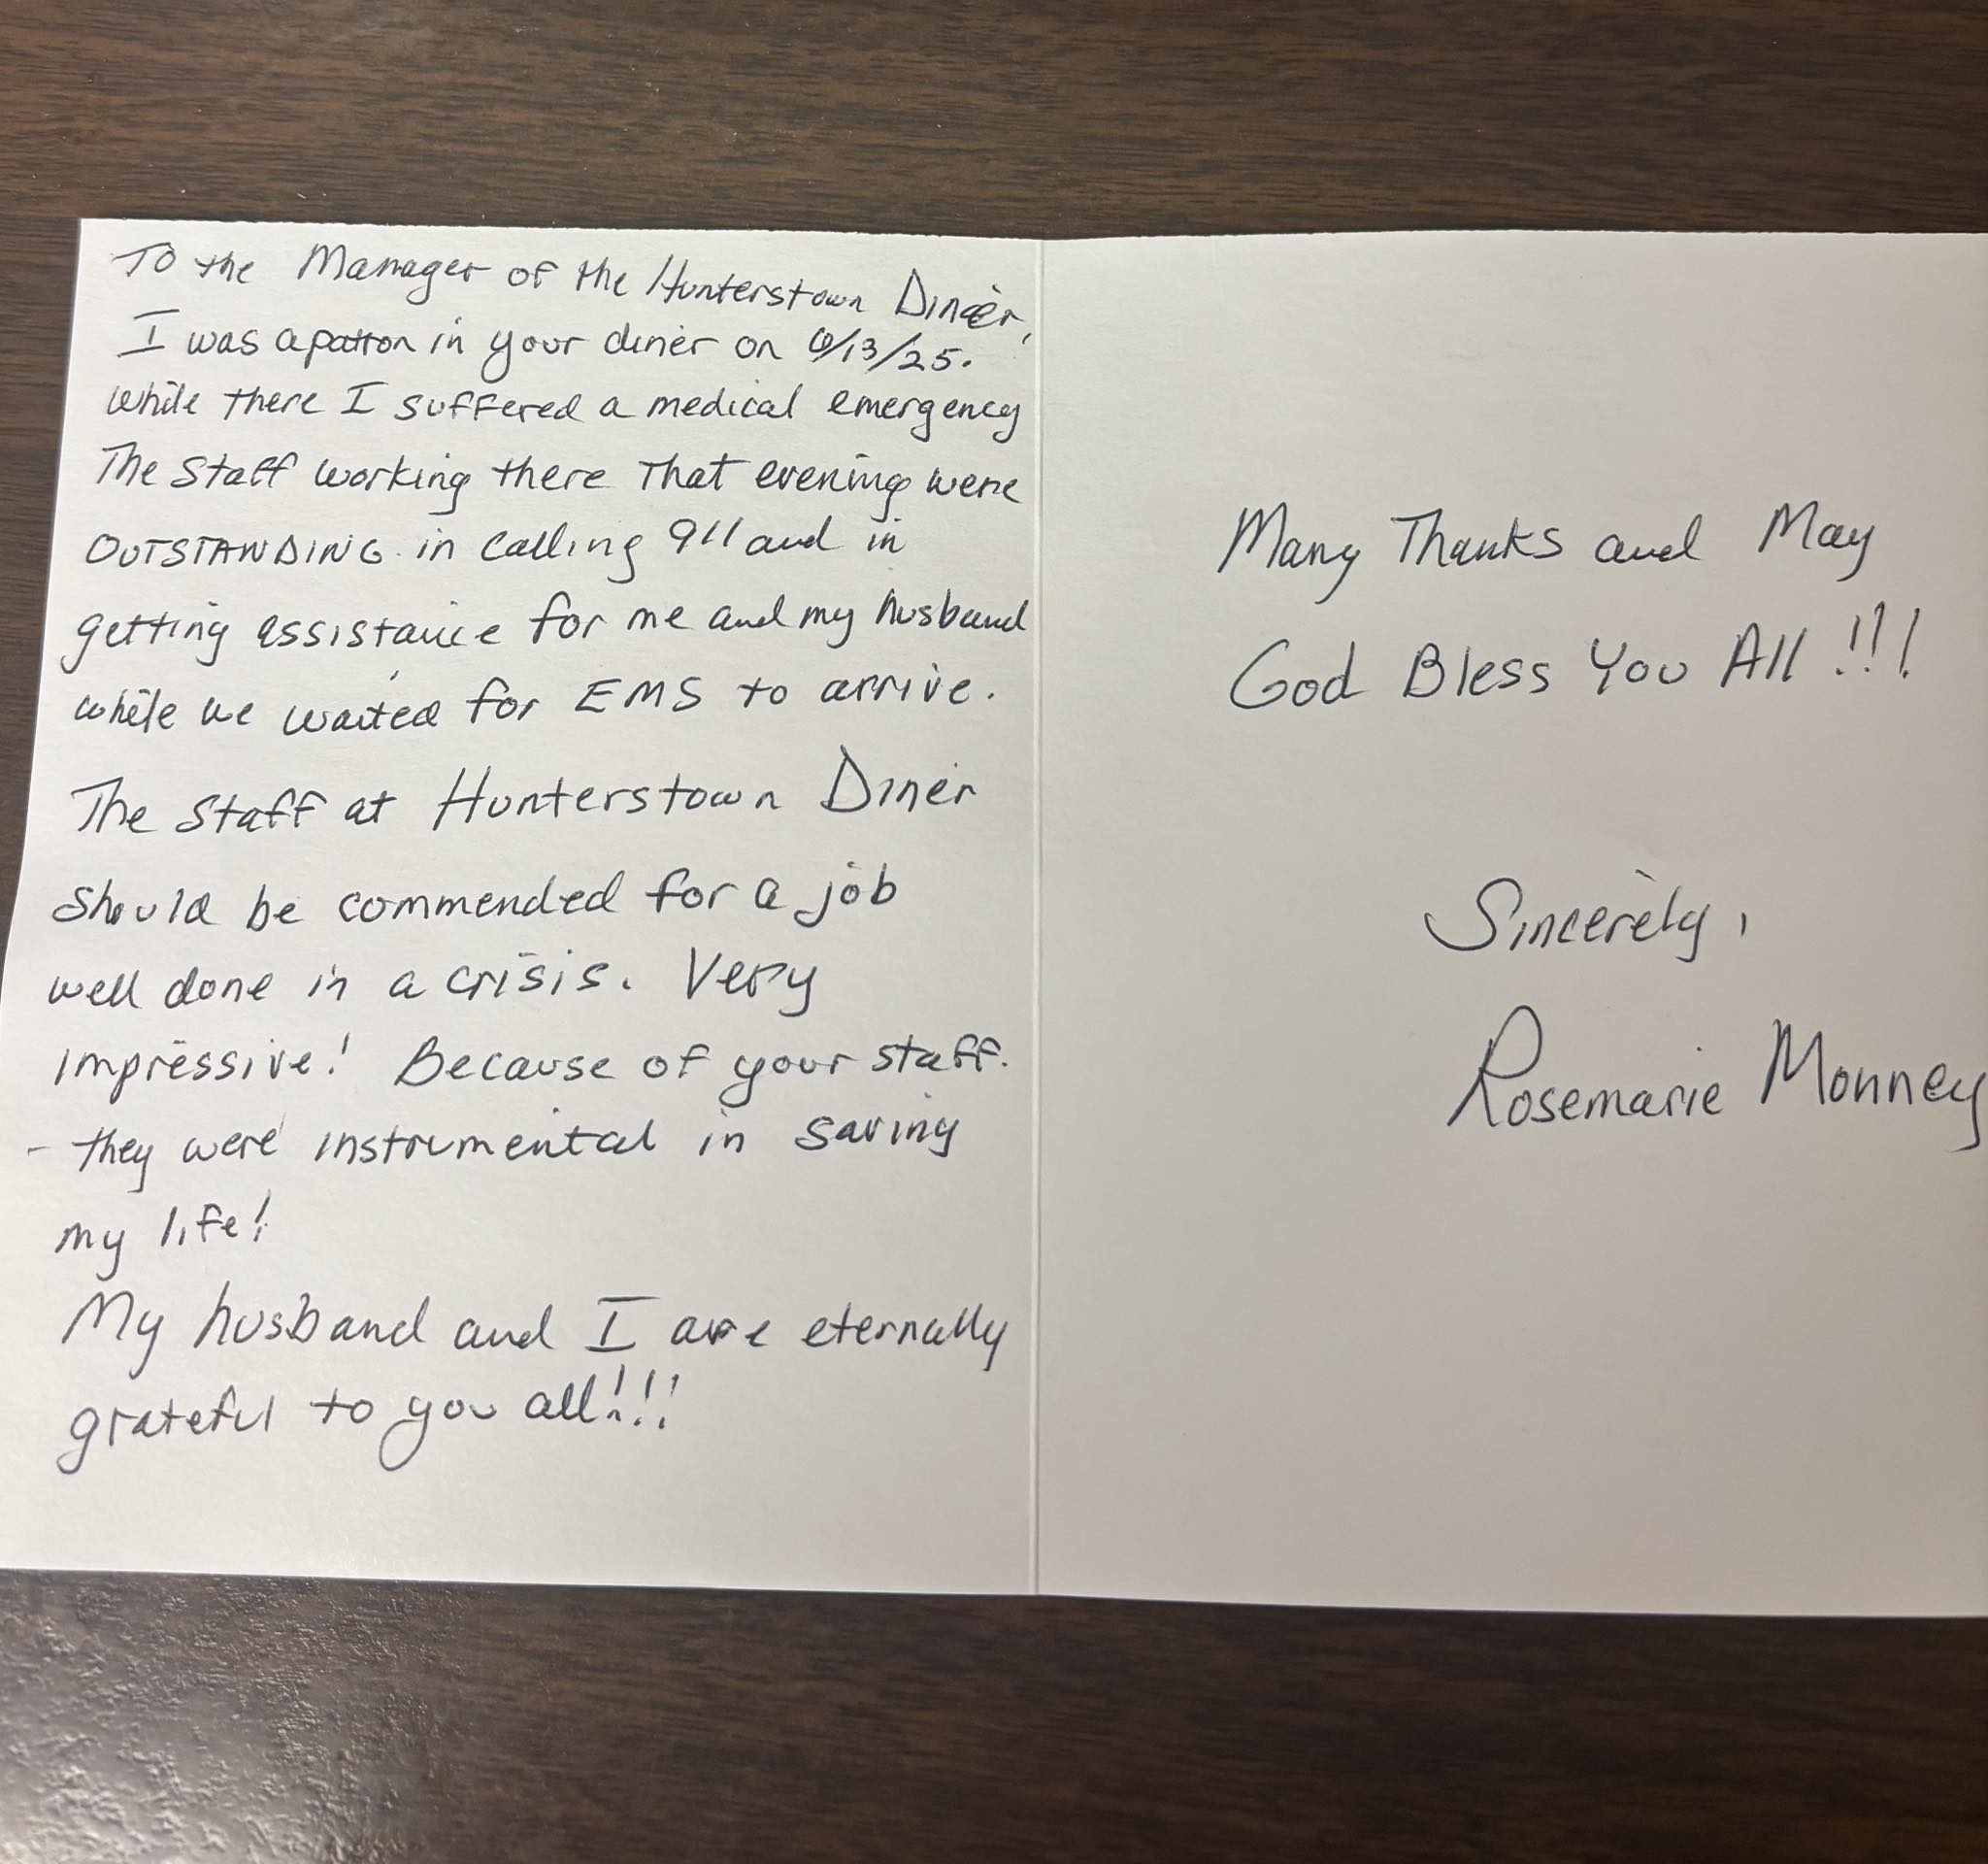 To the Manager of the Hunterstown Diner,
I was a patron in your diner on 6/13/25.
While there I suffered a medical emergency
The Staff working there That evening were
OUTSTANDING in calling 911 and in
getting assistance for me and my husband
while we waited for EMS to arrive.
The Staff at Hunterstown Diner
should be commended for a job
well done in a crisis. Very
impressive! Because of your staff.
- they were instrumental in saving
my life!
My husband and I are eternally
grateful to you all!!!
Many Thanks and May
God Bless You All!!!
Sincerely,
Rosemarie Monney